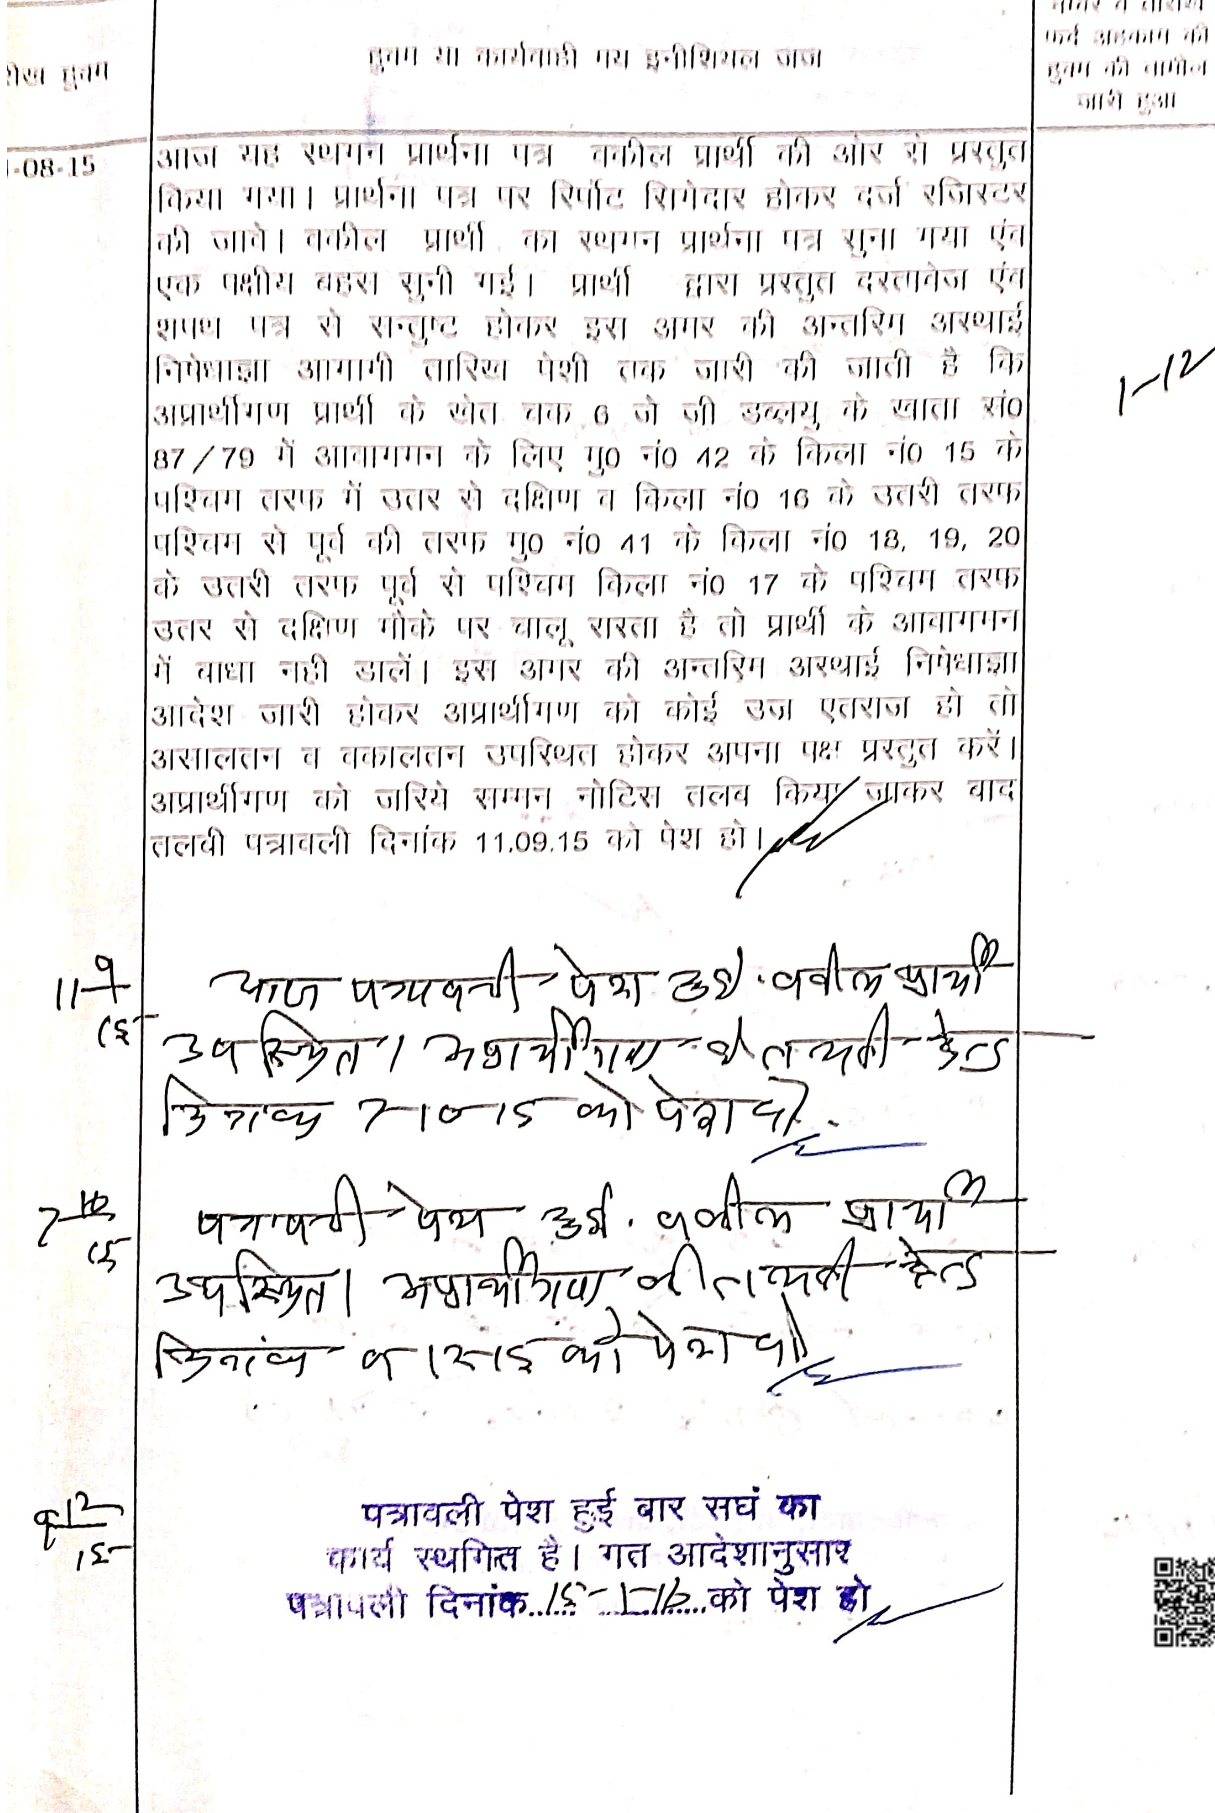 रीख हुक्म
हुक्म या कार्यवाही मय इनीशियल जज
नम्बर व तारीख
फर्द अहकाम की
हुक्म की तामील
जारी हुआ
-08-15
आज यह स्थगन प्रार्थना पत्र वकील प्रार्थी की ओर से प्रस्तुत
किया गया। प्रार्थना पत्र पर रिर्पोट सिगेदार होकर दर्ज रजिस्टर
की जावे। वकील प्रार्थी का स्थगन प्रार्थना पत्र सुना गया एंव
एक पक्षीय बहस सुनी गई। प्रार्थी द्वारा प्रस्तुत दस्तावेज एंव
शपथ पत्र से सन्तुष्ट होकर इस अमर की अन्तरिम अस्थाई
निषेधाज्ञा आगामी तारिख पेशी तक जारी की जाती है कि
अप्रार्थीगण प्रार्थी के खेत चक 6 जे जी डब्लयु के खाता सं0
87/79 में आवागमन के लिए मु0 नं0 42 के किला नं0 15 के
पश्चिम तरफ में उतर से दक्षिण व किला नं0 16 के उतरी तरफ
पश्चिम से पूर्व की तरफ मु0 नं0 41 के किला नं0 18, 19, 20
के उतरी तरफ पूर्व से पश्चिम किला नं0 17 के पश्चिम तरफ
उतर से दक्षिण मौके पर चालू रास्ता है तो प्रार्थी के आवागमन
में बाधा नही डालें। इस अमर की अन्तरिम अस्थाई निषेधाज्ञा
आदेश जारी होकर अप्रार्थीगण को कोई उज एतराज हो तो
असालतन व वकालतन उपस्थित होकर अपना पक्ष प्रस्तुत करें।
अप्रार्थीगण को जरिये सम्मन नोटिस तलब किया जाकर बाद
तलवी पत्रावली दिनांक 11.09.15 को पेश हो।
1-12
11-9
15
आज पत्रावली पेश हुई. वकील प्रार्थी
उपस्थित। अप्रार्थीगण की तलबी हेतु
दिनांक 7-10-15 को पेश हो.
7-10
15
पत्रावली पेश हुई. वकील प्रार्थी
उपस्थित। अप्रार्थीगण की तलबी हेतु
दिनांक 9-12-15 को पेश हो
9-12
15
पत्रावली पेश हुई बार सघं का
कार्य स्थगित है। गत आदेशानुसार
पत्रावली दिनांक..15-1-16..को पेश हो